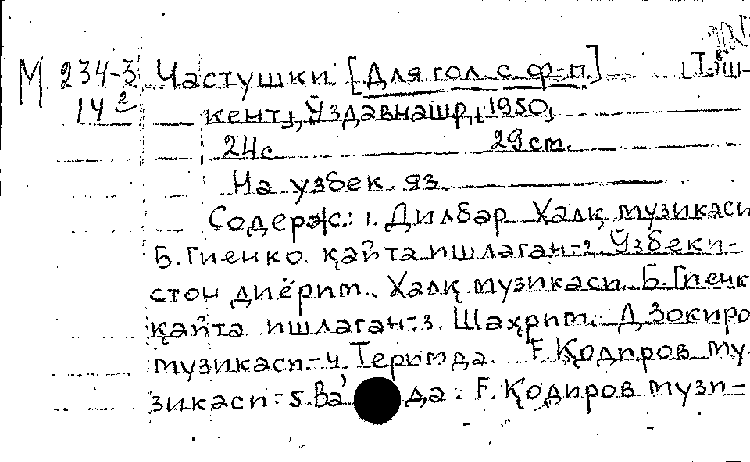 М 234-3 Частушки [Для гол с ф-п] [Таш-
14² кент], Ўздавнашр, 1950,
24с 29см.
На узбек. яз.
Содерж.: 1. Дилбар Халқ музикаси
Б. Гиенко қайта ишлаган.-2. Ўзбеки-
стон диёрим. Халқ музикаси. Б. Гиенк
қайта ишлаган.-3. Шаҳрим. Д. Зокиро
музикаси.-4. Теримда. Ғ. Қодиров му-
зикаси.-5. Ва да. Ғ. Қодиров музи-